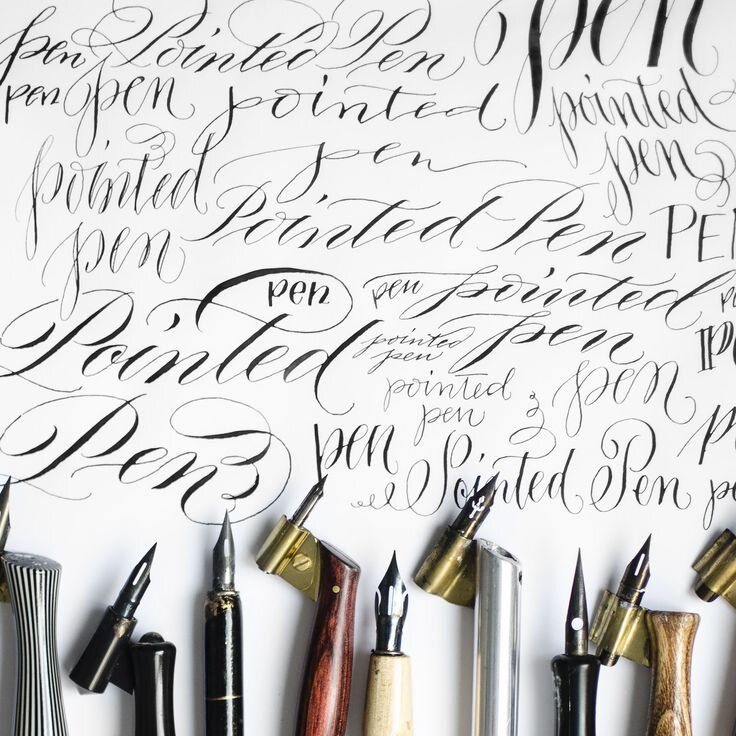 pen Pointed Pen pen
pen pen pointed pointed
pen pen
pointed
pen Pointed Pen PEN
pen pen pointed
Pointed pointed pen
pen
pointed pen
pen
Pen pen Pointed Pen